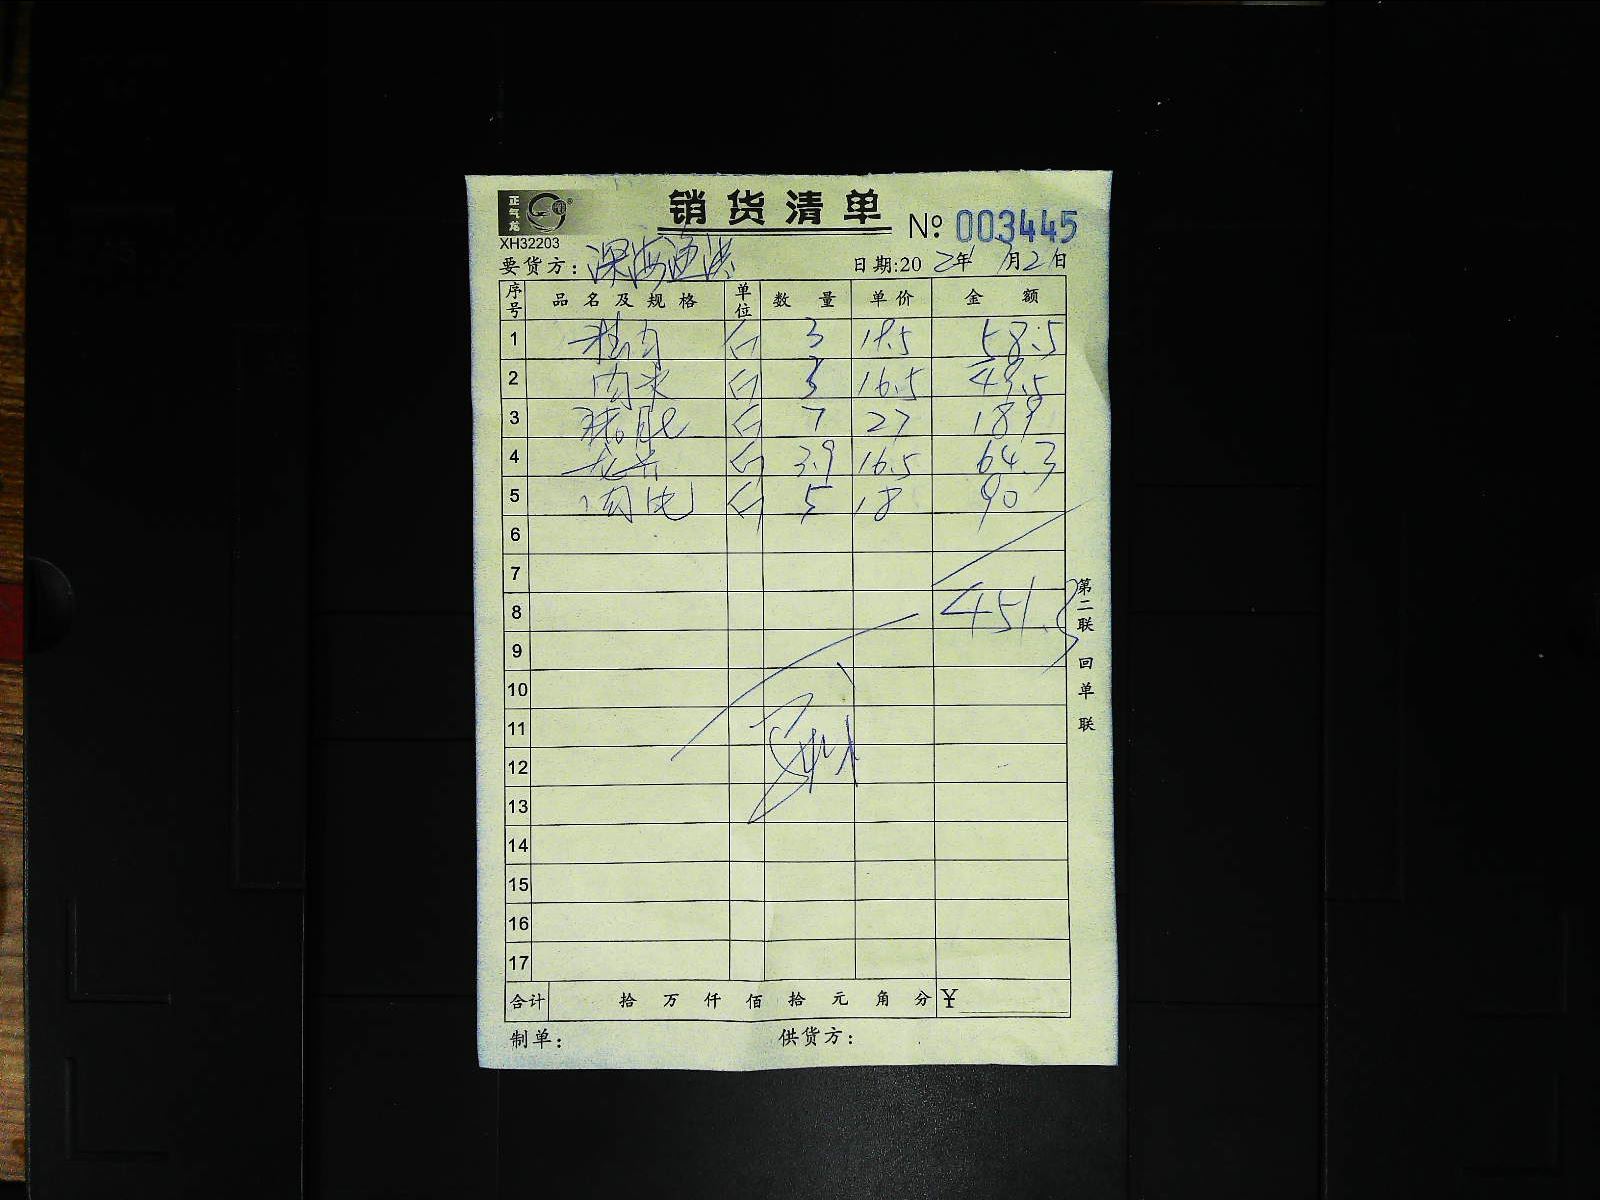 正气龙
销货清单
XH32203
No: 003445
要货方: 深海渔港 日期:20 2年 1月21日
序号 品名及规格 单位 数量 单价 金额
1 斤 3 19.5 58.5
2 肉米 斤 3 16.5 49.5
3 斤 7 27 189
4 龙骨 斤 3.9 16.5 64.3
5 斤 5 18 90
6
7
8 451.3
9
10
11
12
13
14
15
16
17
合计 拾万仟佰拾元角分 ¥
制单: 供货方:
第二联 回单联